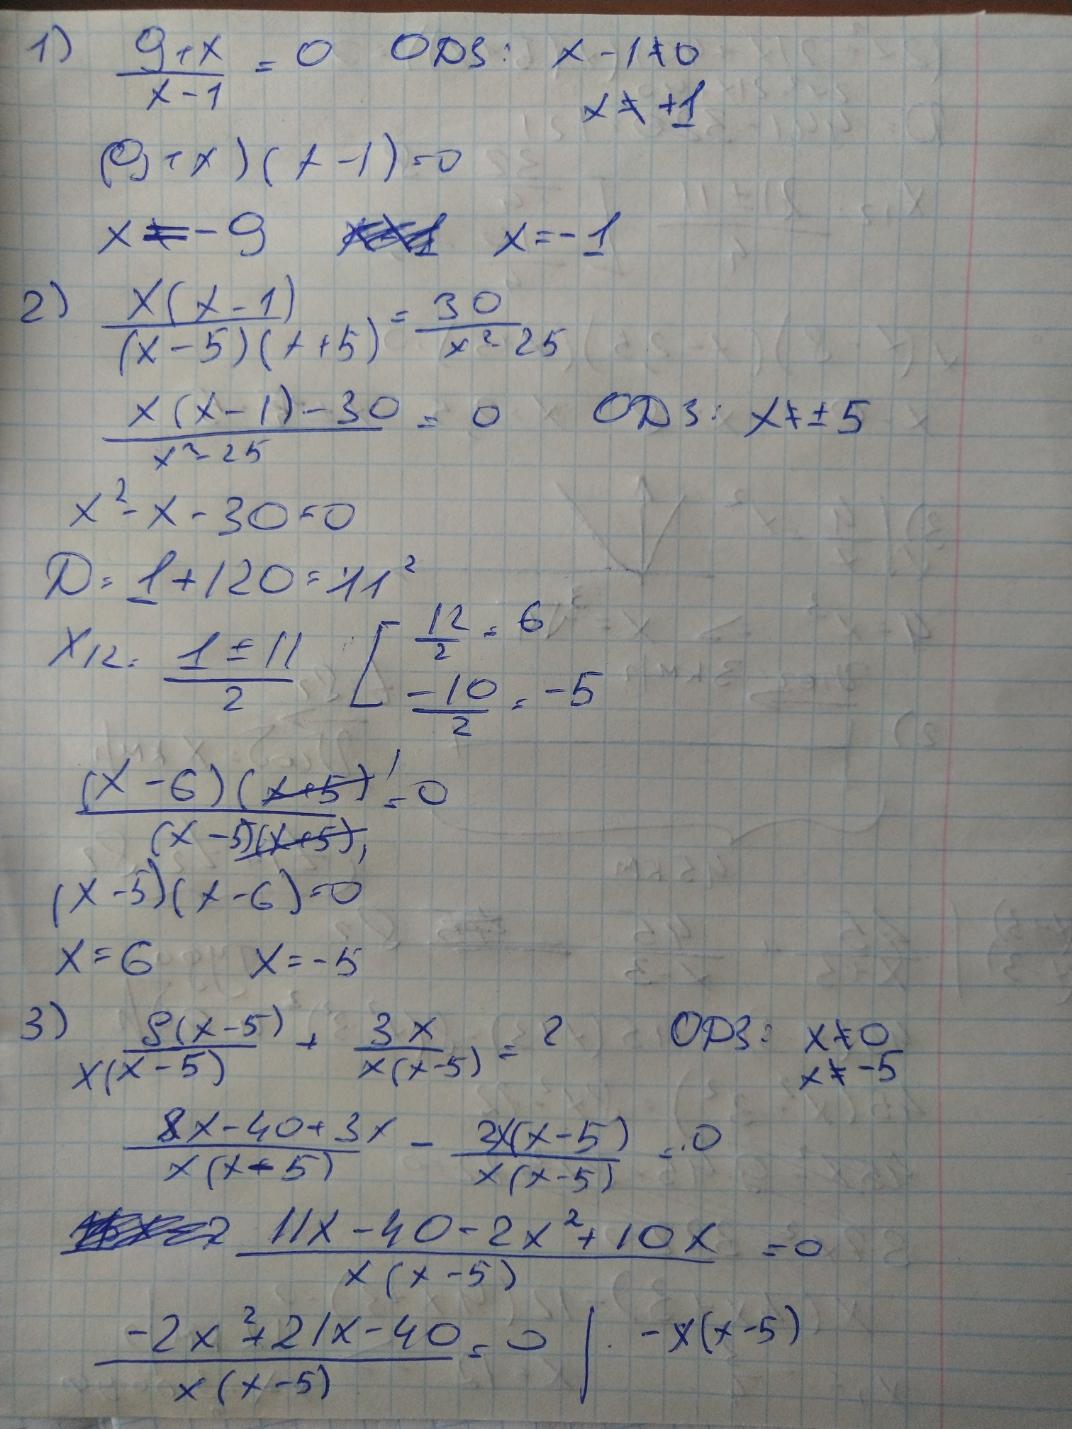 1) (9+x)/(x-1) = 0 ODЗ: x-1≠0
x ≠ +1
(9+x)(x-1)=0
x = -9 x=-1
2) x(x-1)/((x-5)(x+5)) = 30/(x²-25)
(x(x-1)-30)/(x²-25) = 0 ODЗ: x≠±5
x²-x-30=0
D=1+120=11²
x12= (1±11)/2 [ 12/2 = 6
-10/2 = -5
(x-6)(x+5)/((x-5)(x+5)) = 0
(x-5)(x-6)=0
x=6 x=-5
3) 8(x-5)/(x(x-5)) + 3x/(x(x-5)) = 2 ODЗ: x≠0
x≠-5
(8x-40+3x)/(x(x-5)) - 2x(x-5)/(x(x-5)) = 0
(11x-40-2x²+10x)/(x(x-5)) = 0
(-2x²+21x-40)/(x(x-5)) = 0 | · -x(x-5)